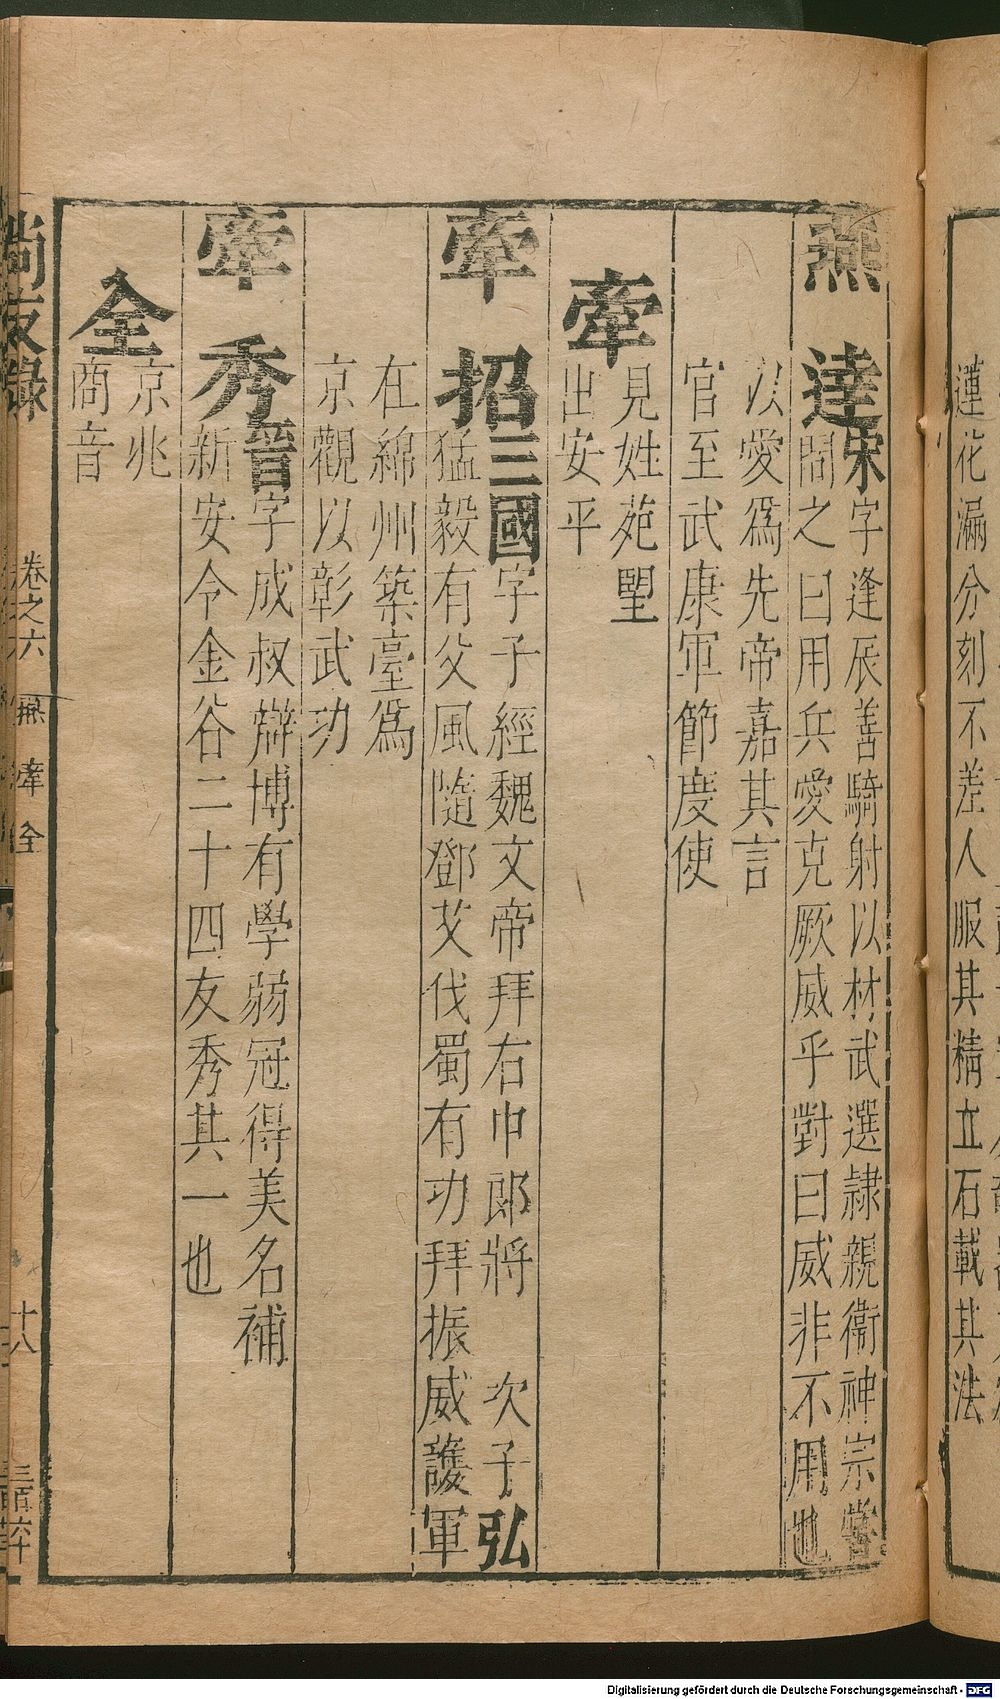 蓮花漏分刻不差人服其精立石載其法
燕達宋字逢辰善騎射以材武選隷親衞神宗嘗
問之曰用兵愛克厥威乎對曰威非不用也
以愛爲先帝嘉其言
官至武康軍節度使
牽見姓苑
出安平
牽招三國字子經魏文帝拜右中郎將 次子弘
猛毅有父風隨鄧艾伐蜀有功拜振威護軍
在綿州築臺爲
京觀以彰武功
牽秀晉字成叔辯博有學弱冠得美名補
新安令金谷二十四友秀其一也
全京兆
商音
尚友錄 卷之六 燕 牽 全 十八
Digitalisierung gefördert durch die Deutsche Forschungsgemeinschaft - DFG